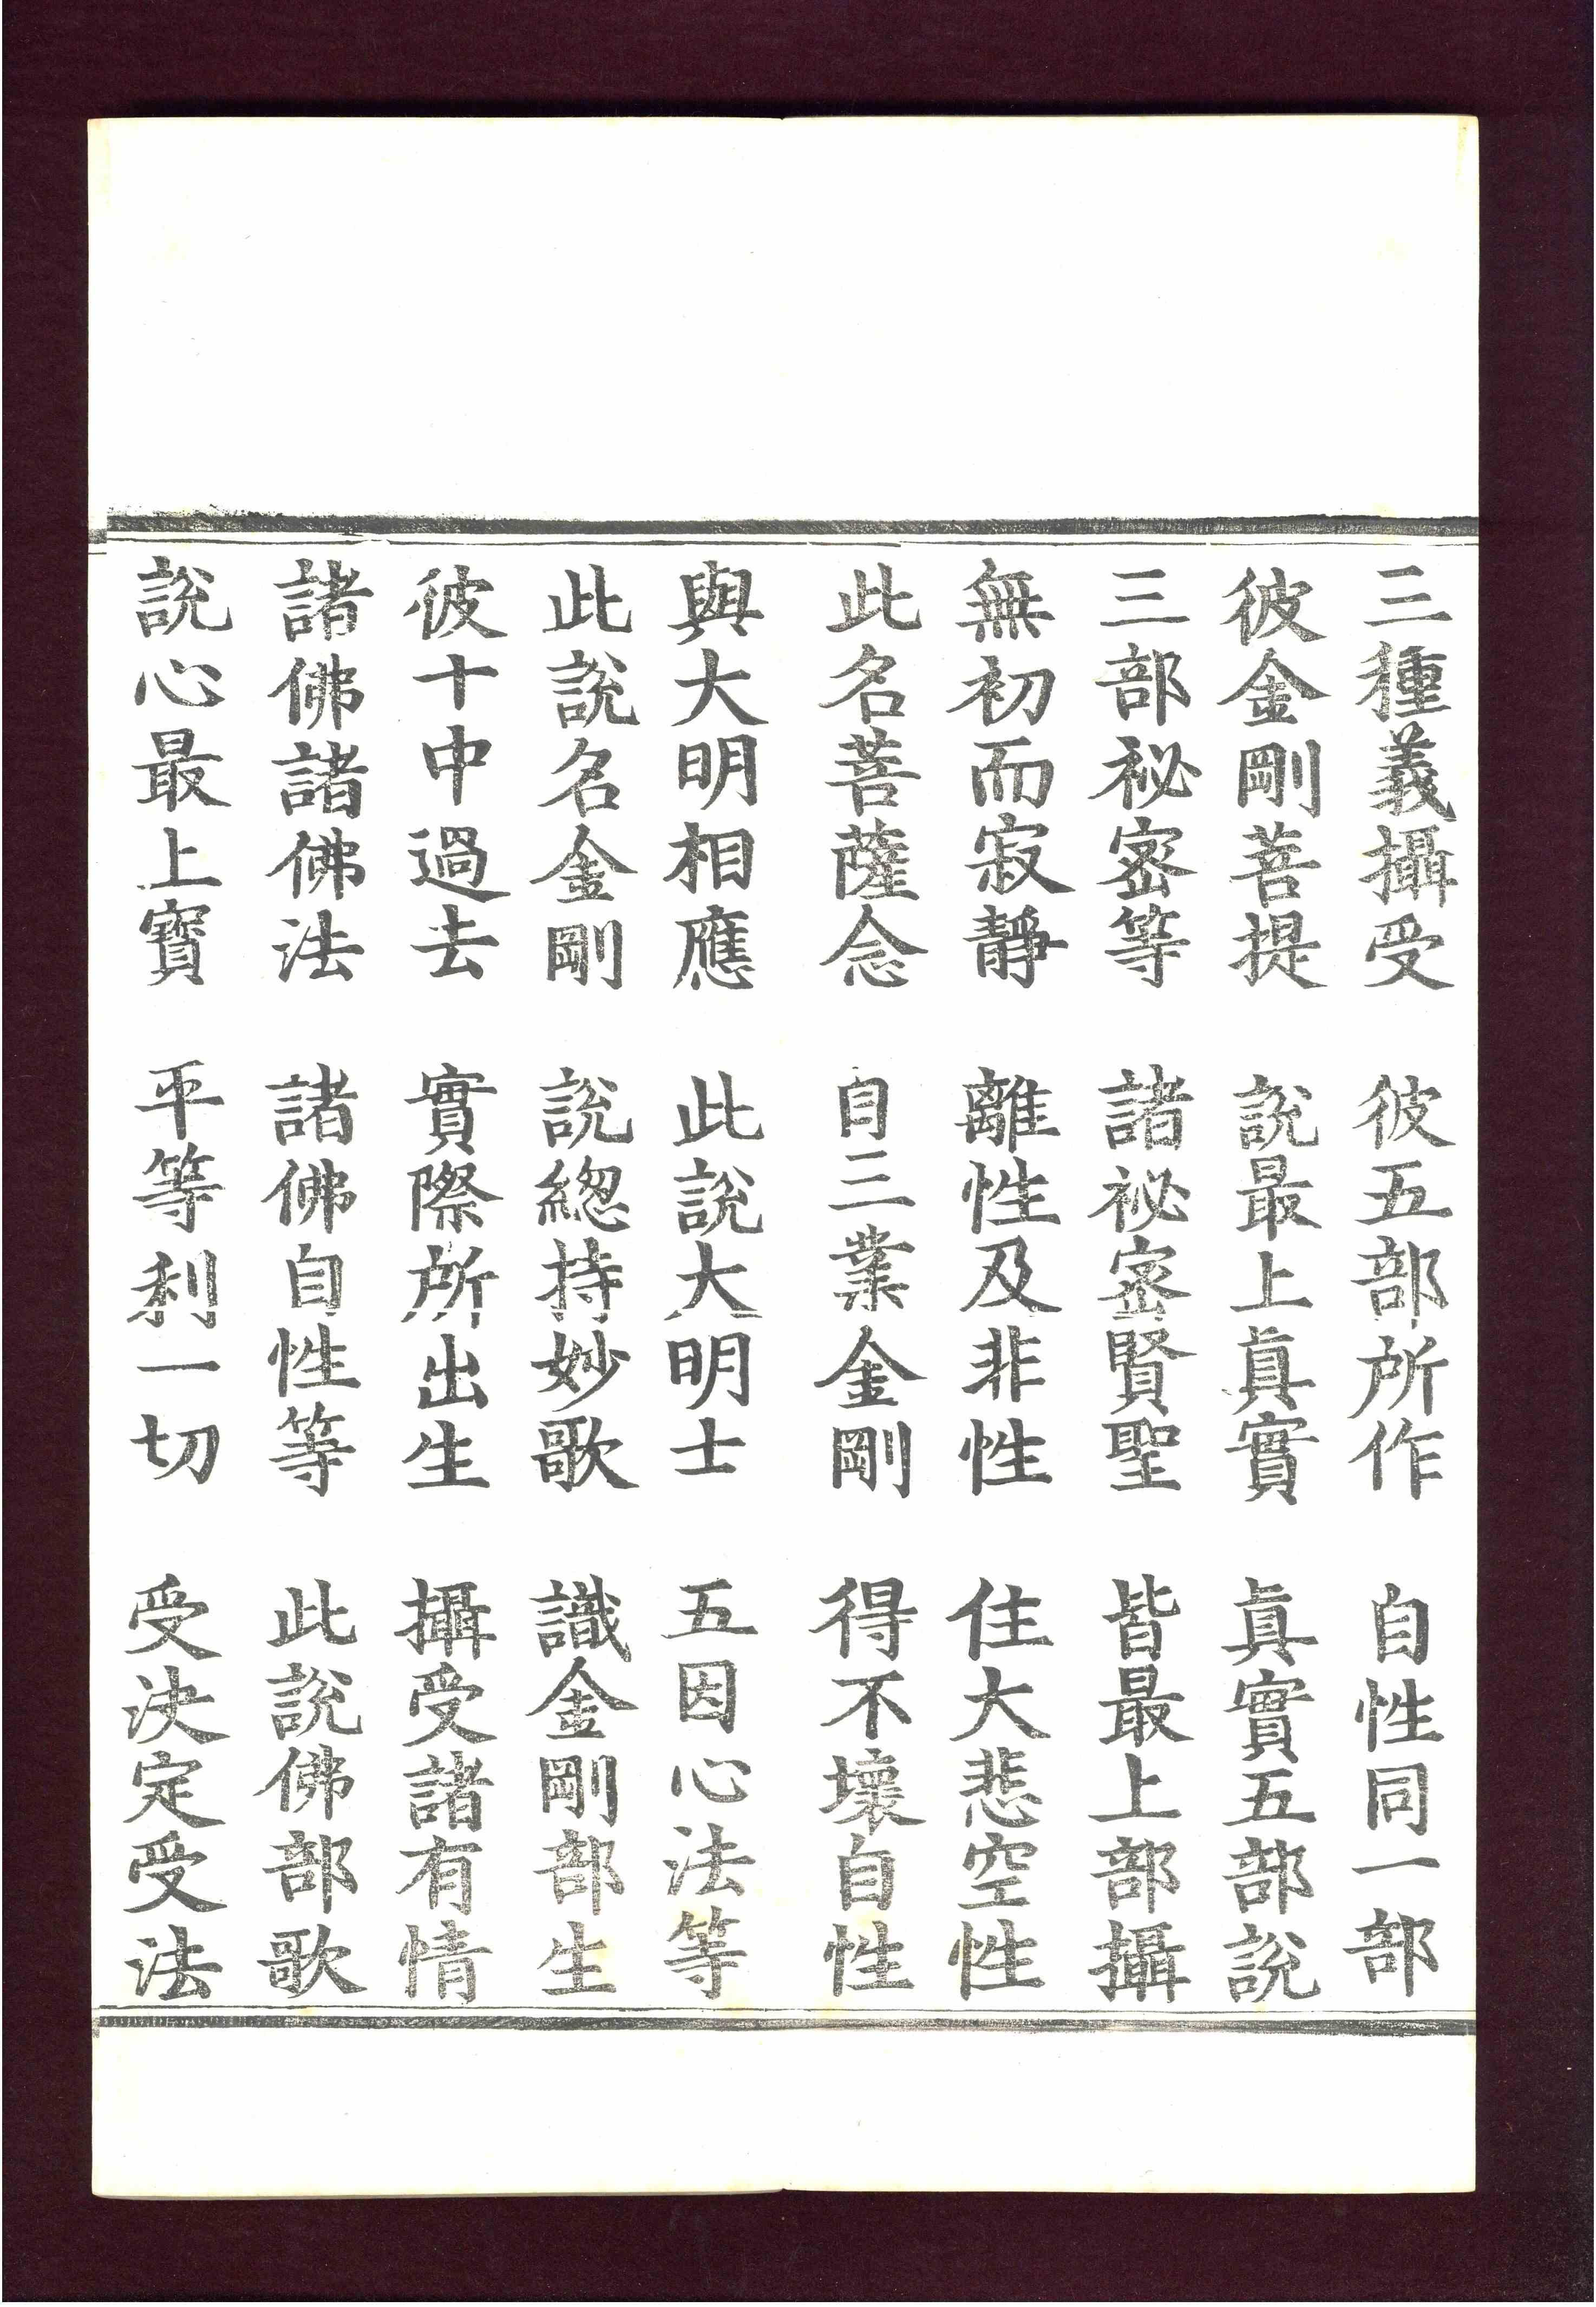 三種義攝受　彼五部所作　自性同一部
彼金剛菩提　說最上真實　真實五部說
三部祕密等　諸祕密賢聖　皆最上部攝
無初而寂靜　離性及非性　住大悲空性
此名菩薩念　自三業金剛　得不壞自性
與大明相應　此說大明士　五因心法等
此說名金剛　說緫持妙歌　識金剛部生
彼十中過去　實際所出生　攝受諸有情
諸佛諸佛法　諸佛自性等　此說佛部歌
說心最上寶　平等利一切　受決定受法